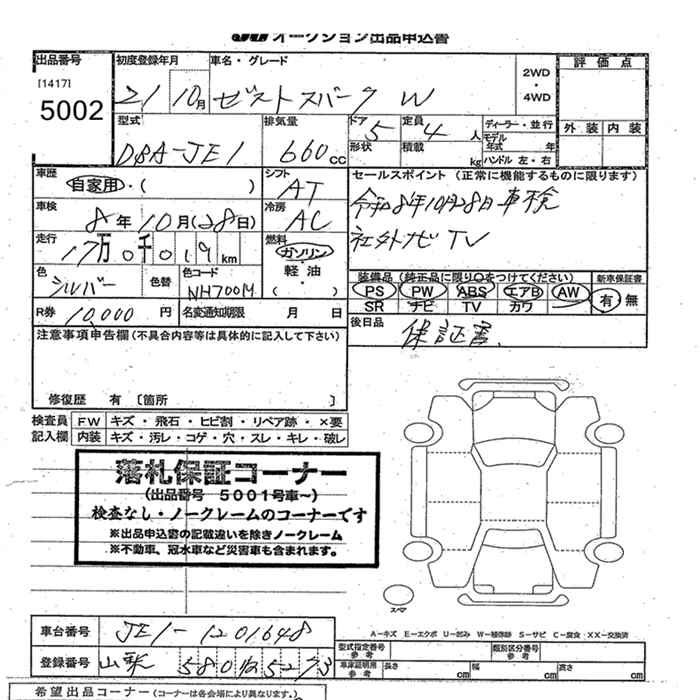 JU オークション出品申込書
出品番号 初度登録年月 車名・グレード 評価点
[1417] 5002 21 10月 ゼスト スパーク W 2WD・4WD
型式 排気量 ドア 定員 ディーラー・並行 外装 内装
DBA-JE1 660cc 5 4人 モデル年式 年
形状 積載 kg ハンドル 左・右
車歴 シフト セールスポイント (正常に機能するものに限ります)
自家用・( ) AT 令和8年10月28日車検
車検 冷房
8年10月(28日) AC 社外ナビ TV
走行 燃料
17万0千019km ガソリン・軽油・( )
色 色替 色コード 装備品(純正品に限り○をつけてください) 新車保証書
シルバー NH700M PS PW ABS エアB AW 有・無
SR ナビ TV カワ
R券 10,000円 名変通知期限 月 日 後日品
保証書
注意事項申告欄(不具合内容等は具体的に記入して下さい)
修復歴 有〔箇所 〕
検査員 FW キズ・飛石・ヒビ割・リペア跡・×要
記入欄 内装 キズ・汚レ・コゲ・穴・スレ・キレ・破レ
落札保証コーナー
(出品番号 5001号車~)
検査なし・ノークレームのコーナーです
※出品申込書の記載違いを除きノークレーム
※不動車、冠水車など災害車も含まれます。
スペア
A-キズ E-エクボ U-凹み W-補修跡 S-サビ C-腐食 XX-交換済
車台番号 JE1-1201648 型式指定番号 参考 類別区分番号 参考
登録番号 580 5273 車庫証明用 参考 長さ cm 幅 cm 高さ cm
希望出品コーナー(コーナーは各会場により異なります。)